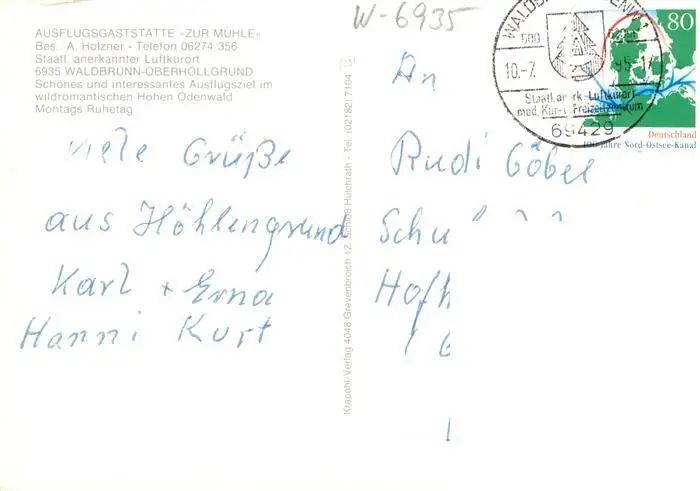 W-6935
AUSFLUGSGASTSTÄTTE »ZUR MÜHLE«
Bes. A. Holzner - Telefon 06274 356
Staatl. anerkannter Luftkurort
6935 WALDBRUNN-OBERHÖLLGRUND
Schönes und interessantes Ausflugsziel im
wildromantischen Hohen Odenwald
Montags Ruhetag
Viele Grüße
aus Höhlengrund
Karl + Erna
Hanni Kurt
Krapohl-Verlag 4048 Grevenbroich 12, Schloß Hülchrath - Tel. (02182) 7104
An
Rudi Göbel
Schu
Hofh
10.-7.
95
Staatl. anerk. Luftkurort
med. Kur- u. Freizeitzentrum
69429
80
Deutschland
100 Jahre Nord-Ostsee-Kanal